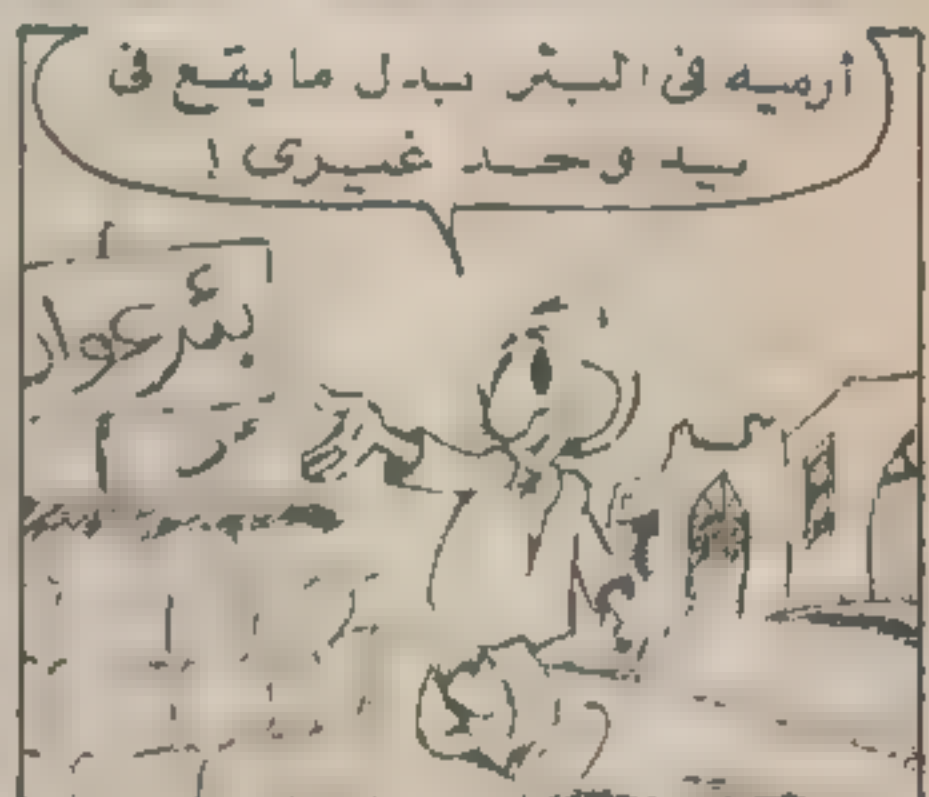 أرميه فى البئر بدل ما يقع فى
يد وحد غيرى !
بئر عوار